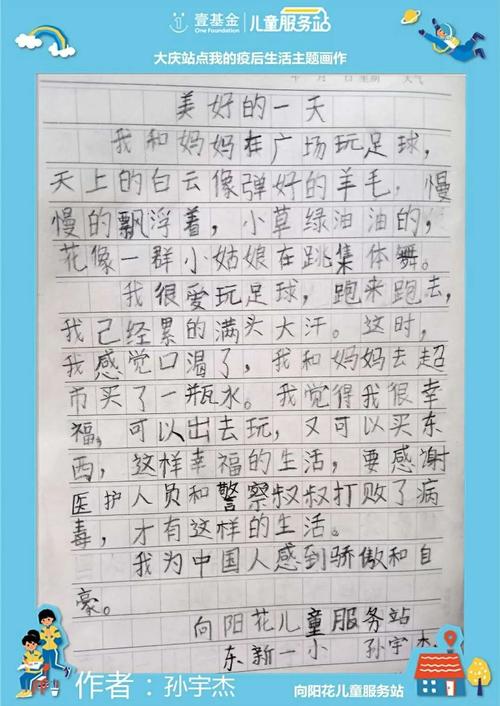 壹基金 One Foundation 儿童服务站
大庆站点我的疫后生活主题画作
年 月 日 星期 天气
美好的一天
我和妈妈在广场玩足球，
天上的白云像弹好的羊毛，慢
慢的飘浮着，小草绿油油的，
花像一群小姑娘在跳集体舞。
我很爱玩足球，跑来跑去，
我己经累的满头大汗。这时，
我感觉口渴了，我和妈妈去超
市买了一瓶水。我觉得我很幸
福，可以出去玩，又可以买东
西，这样幸福的生活，要感谢
医护人员和警察叔叔打败了病
毒，才有这样的生活。
我为中国人感到骄傲和自
豪。
向阳花儿童服务站
东新一小 孙宇杰
作者：孙宇杰
向阳花儿童服务站